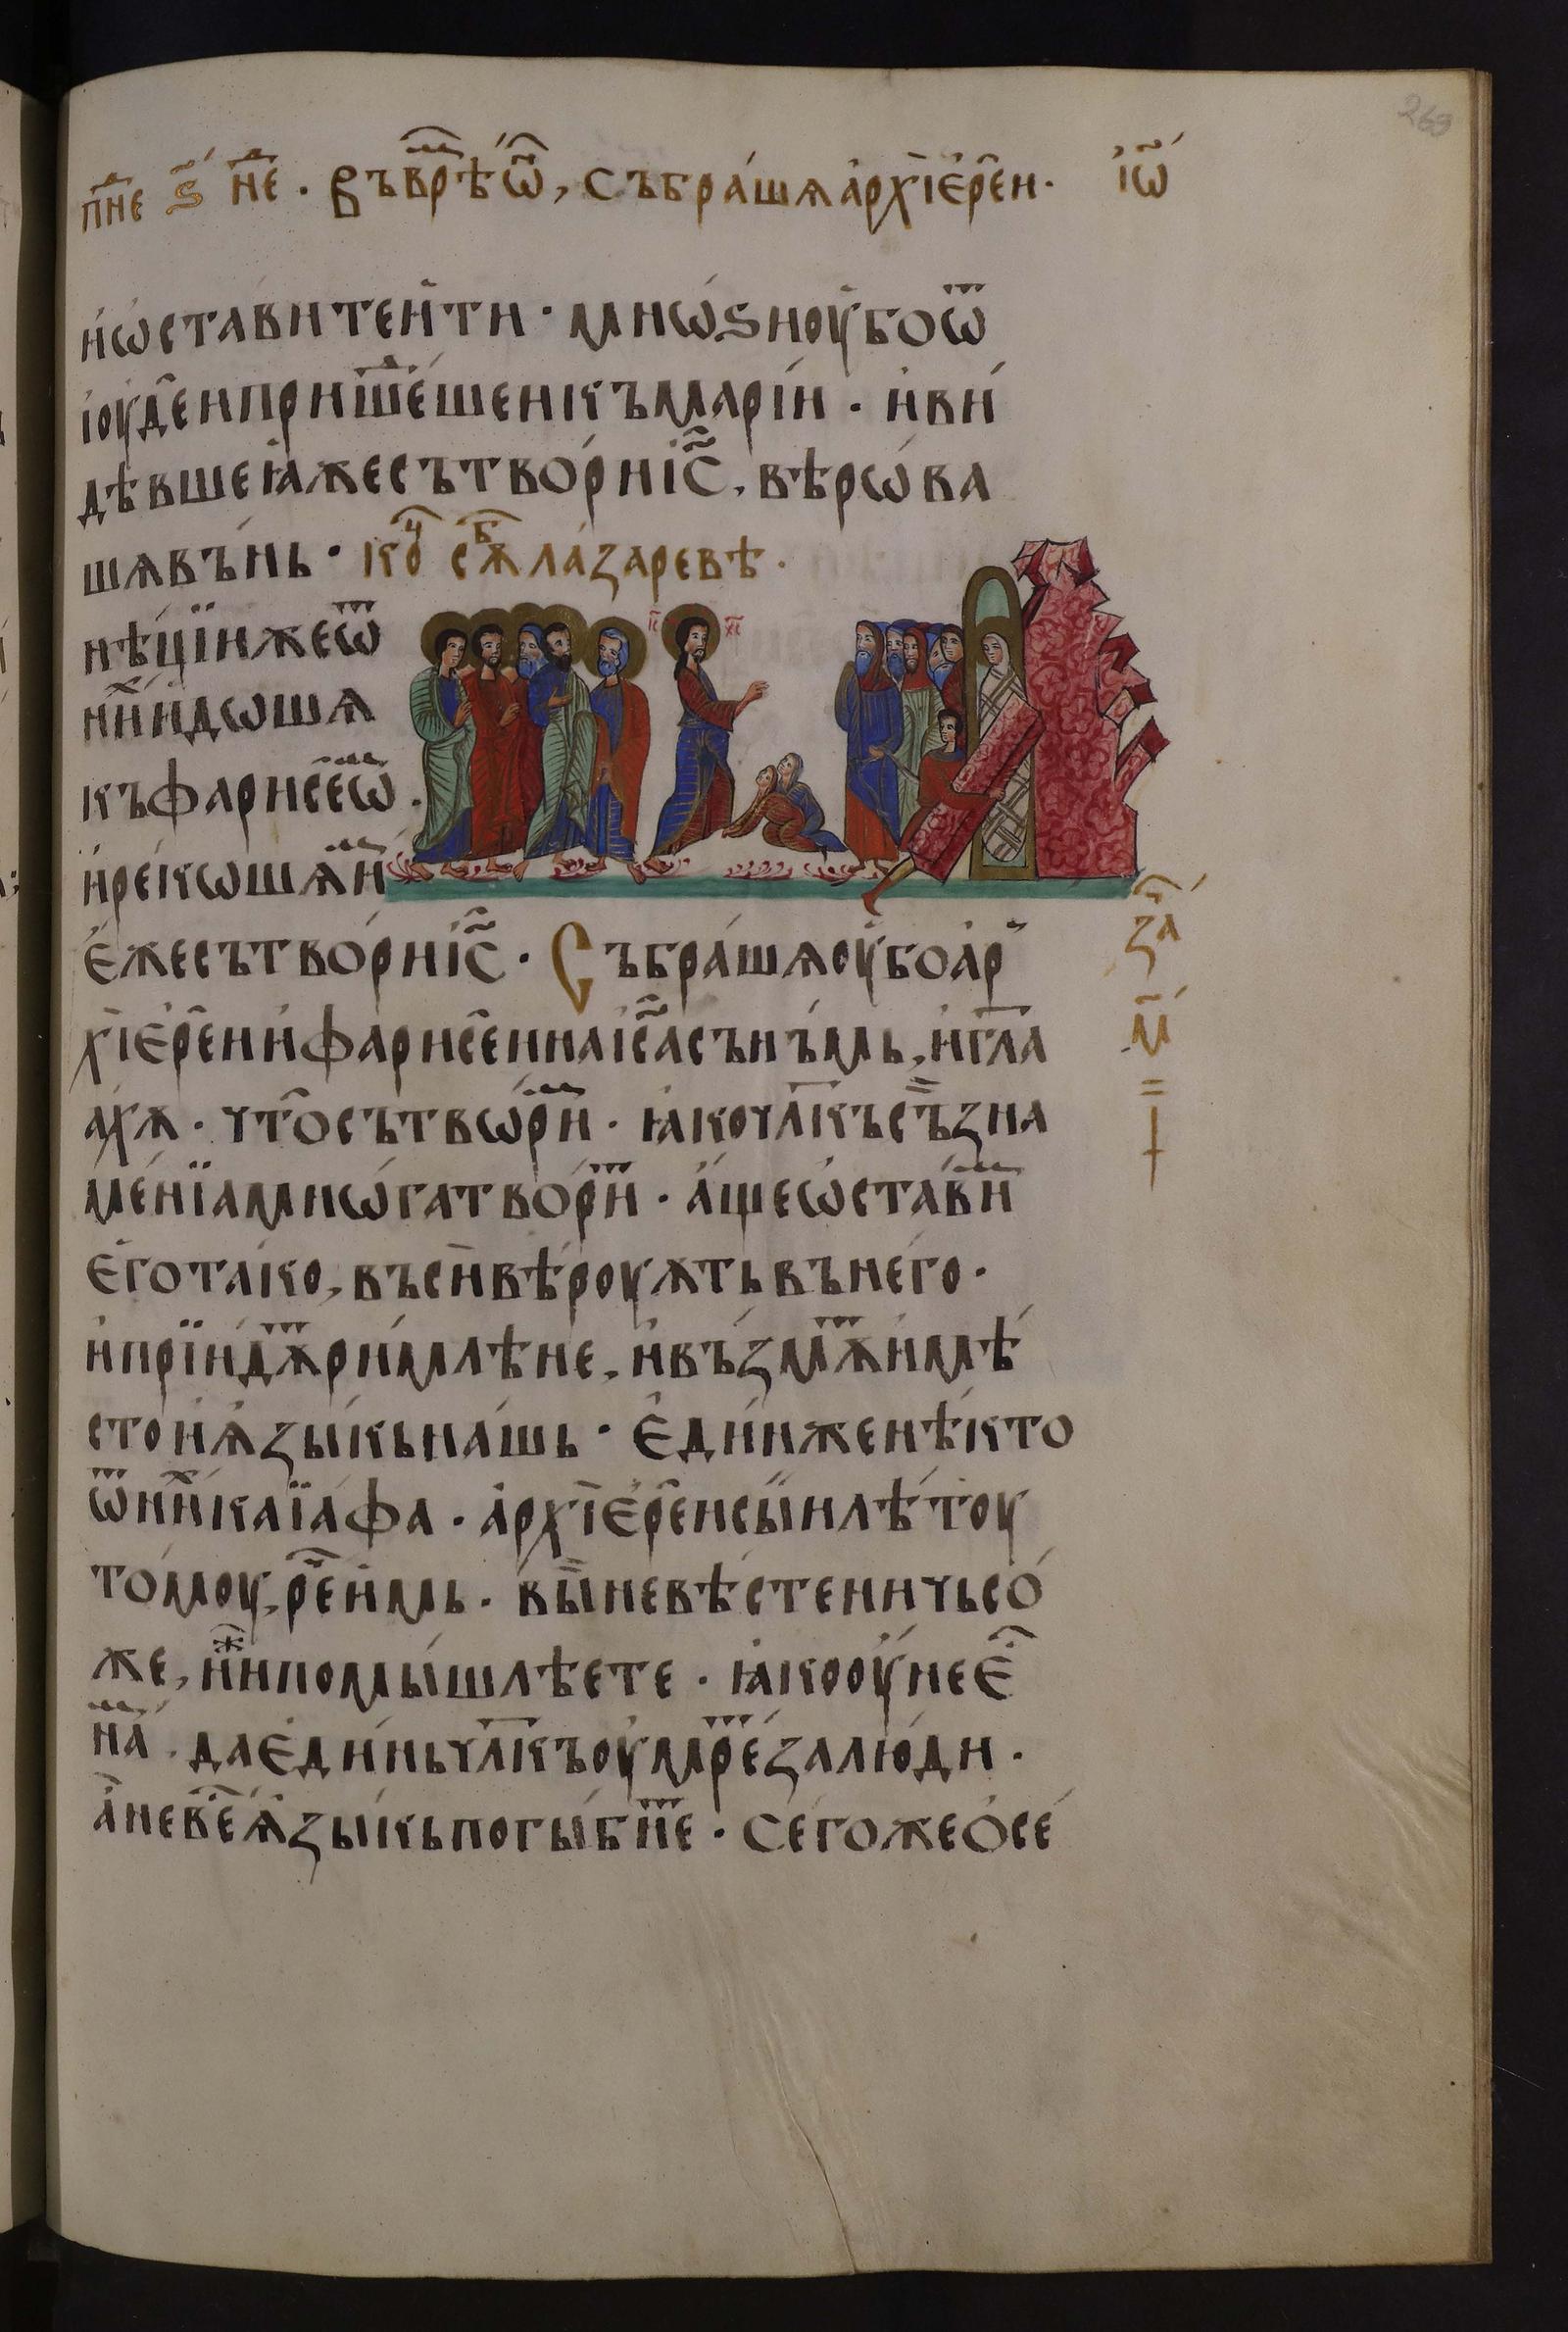 269
пн҃е ѕ҃ нⷣе · Въ врⷨѣ ѡ҆͂, събра́шѧ а҆рхїере́и · і҆ѡ҃
и҆ ѡ҆ста́вите и҆ ти · мнѡ́ѕи оу҆бо ѿ
і҆оуде́и пришеⷣше́и къ марі́и · и҆ ви́
дѣвше ꙗ҆́же сътвори́ і҆с҃, вѣ́рѡва
шѧ въ́ нь · коⷰ҇ сѫⷠ҇ ла́заревѣ ·
нѣ́цїи же ѿ
ниⷯ и҆дѡшѧ
къ фарисеѡⷨ ·
и҆ реⷦкѡшѧ иⷨ
І҆С҃ Х҃С
є҆́же сътвори́ і҆с҃ · Събра́шѧ оу҆бо а҆р
хїере́и и҆ фарисе́и на і҆с҃а съньмь, и҆ гл҃а
ахѫ · что сътвѡриⷨ · ꙗ҆ко чл҃къ съ зна
ме́нїа мнѡ́га твориⷮ · а҆́ще ѡ҆ста́виⷨ
є҆го та́ко, въси вѣ́роуѫть въ него ·
и҆ прїи́дѫⷮ ри́млѣне, и҆ въ́змѫⷮ и҆ мѣ́
сто и҆ ѧ҆зы́кь на́шь · Є҆ди́н же нѣ́кто
ѿ ниⷯ каїа́фа · а҆рхїере́и сы́и лѣ́тоу
то́моу, рече и҆мь · вы не вѣ́сте ничьсо́
же, ниⷤ помышлѣете · ꙗ҆ко оу҆́не є҆ⷭ҇
наⷨ · да є҆ди́нь чл҃къ оу҆мреⷮ за лю́ди ·
а҆ не весь ѧ҆зы́кь погы́бнеⷮ · Сего́ же ѡ҆ се
за҇ⷱ
м҃